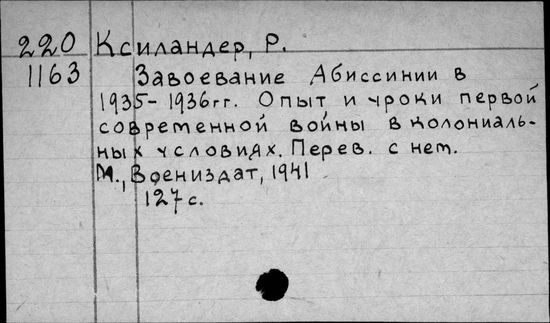 220 Ксиландер, Р.
1163 Завоевание Абиссинии в
1935-1936гг. Опыт и уроки первой
современной войны в колониаль-
ных условиях. Перев. с нем.
М., Воениздат, 1941
127 с.